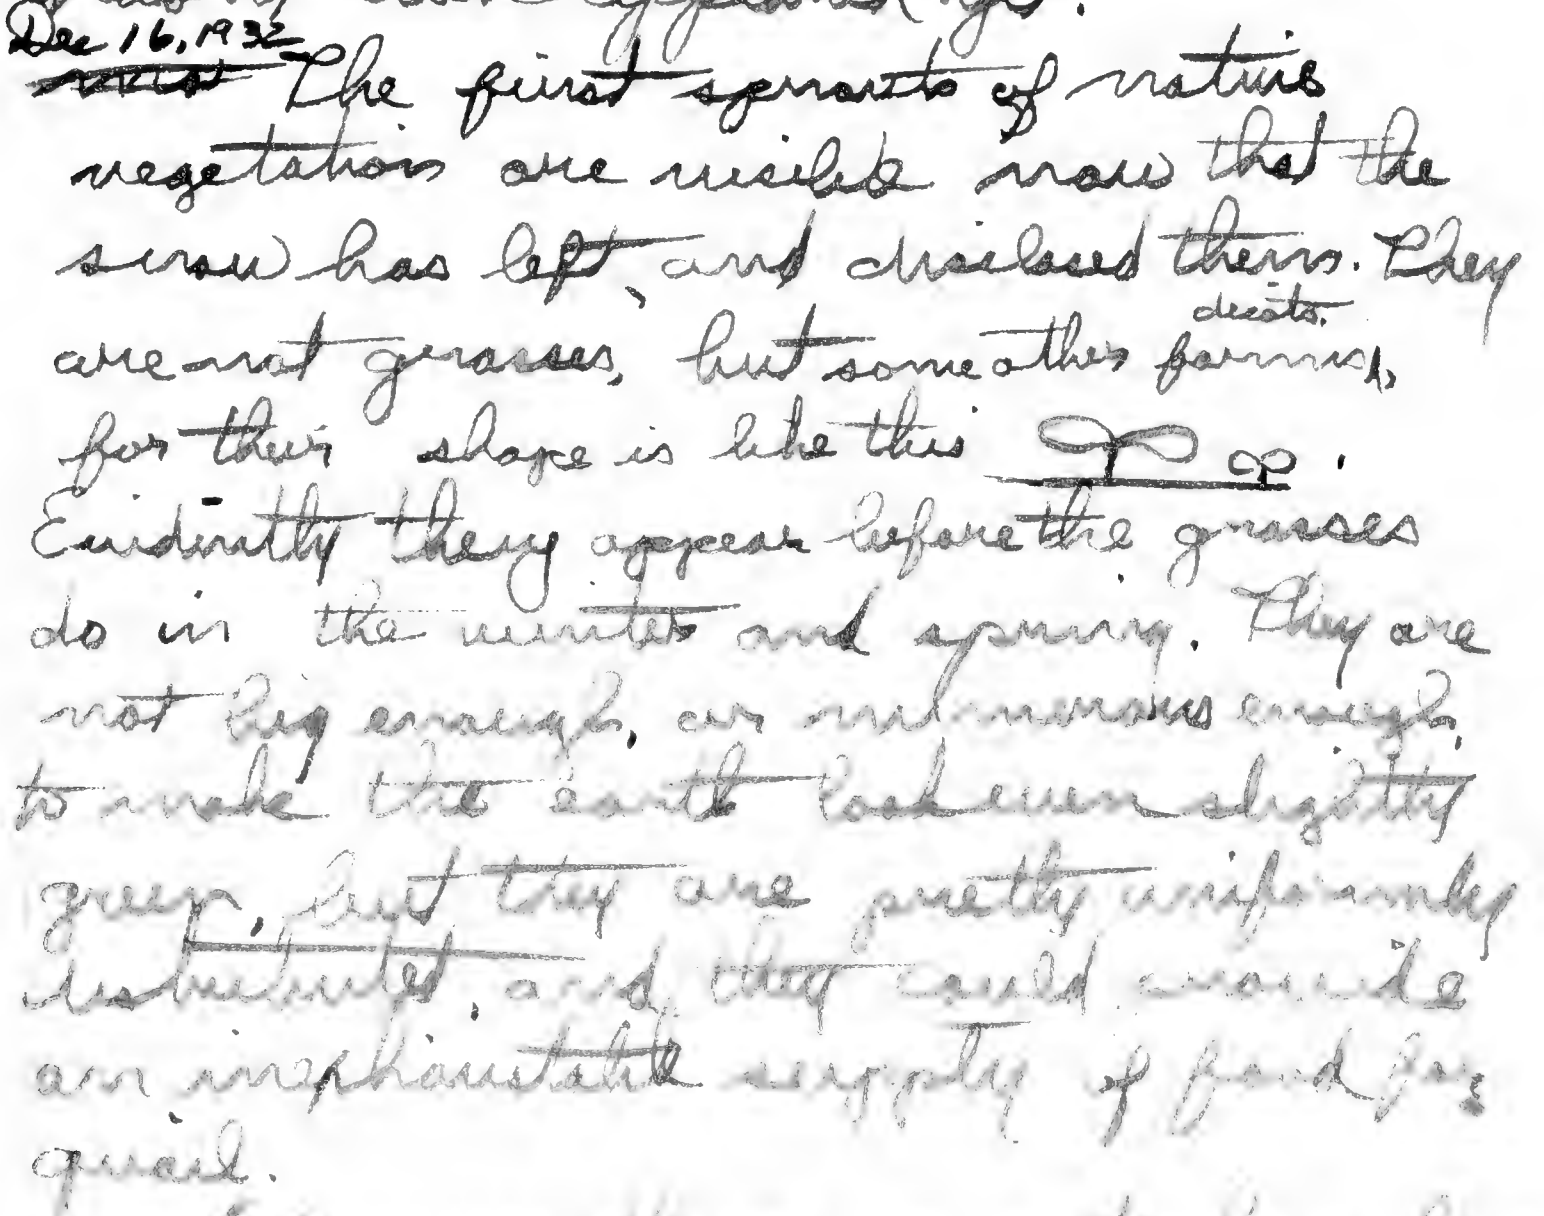 Dec 16, 1932
The first sprouts of native
vegetation are visible now that the
snow has left, and disclosed them. They
dicots.
are not grasses, but some other forms,
for their shape is like this
Evidently they appear before the grasses
do in the winter and spring. They are
not big enough, or numerous enough,
to make the earth look even slightly
green, but they are pretty uniformly
distributed, and they could provide
an inexhaustable supply of food for
quail.